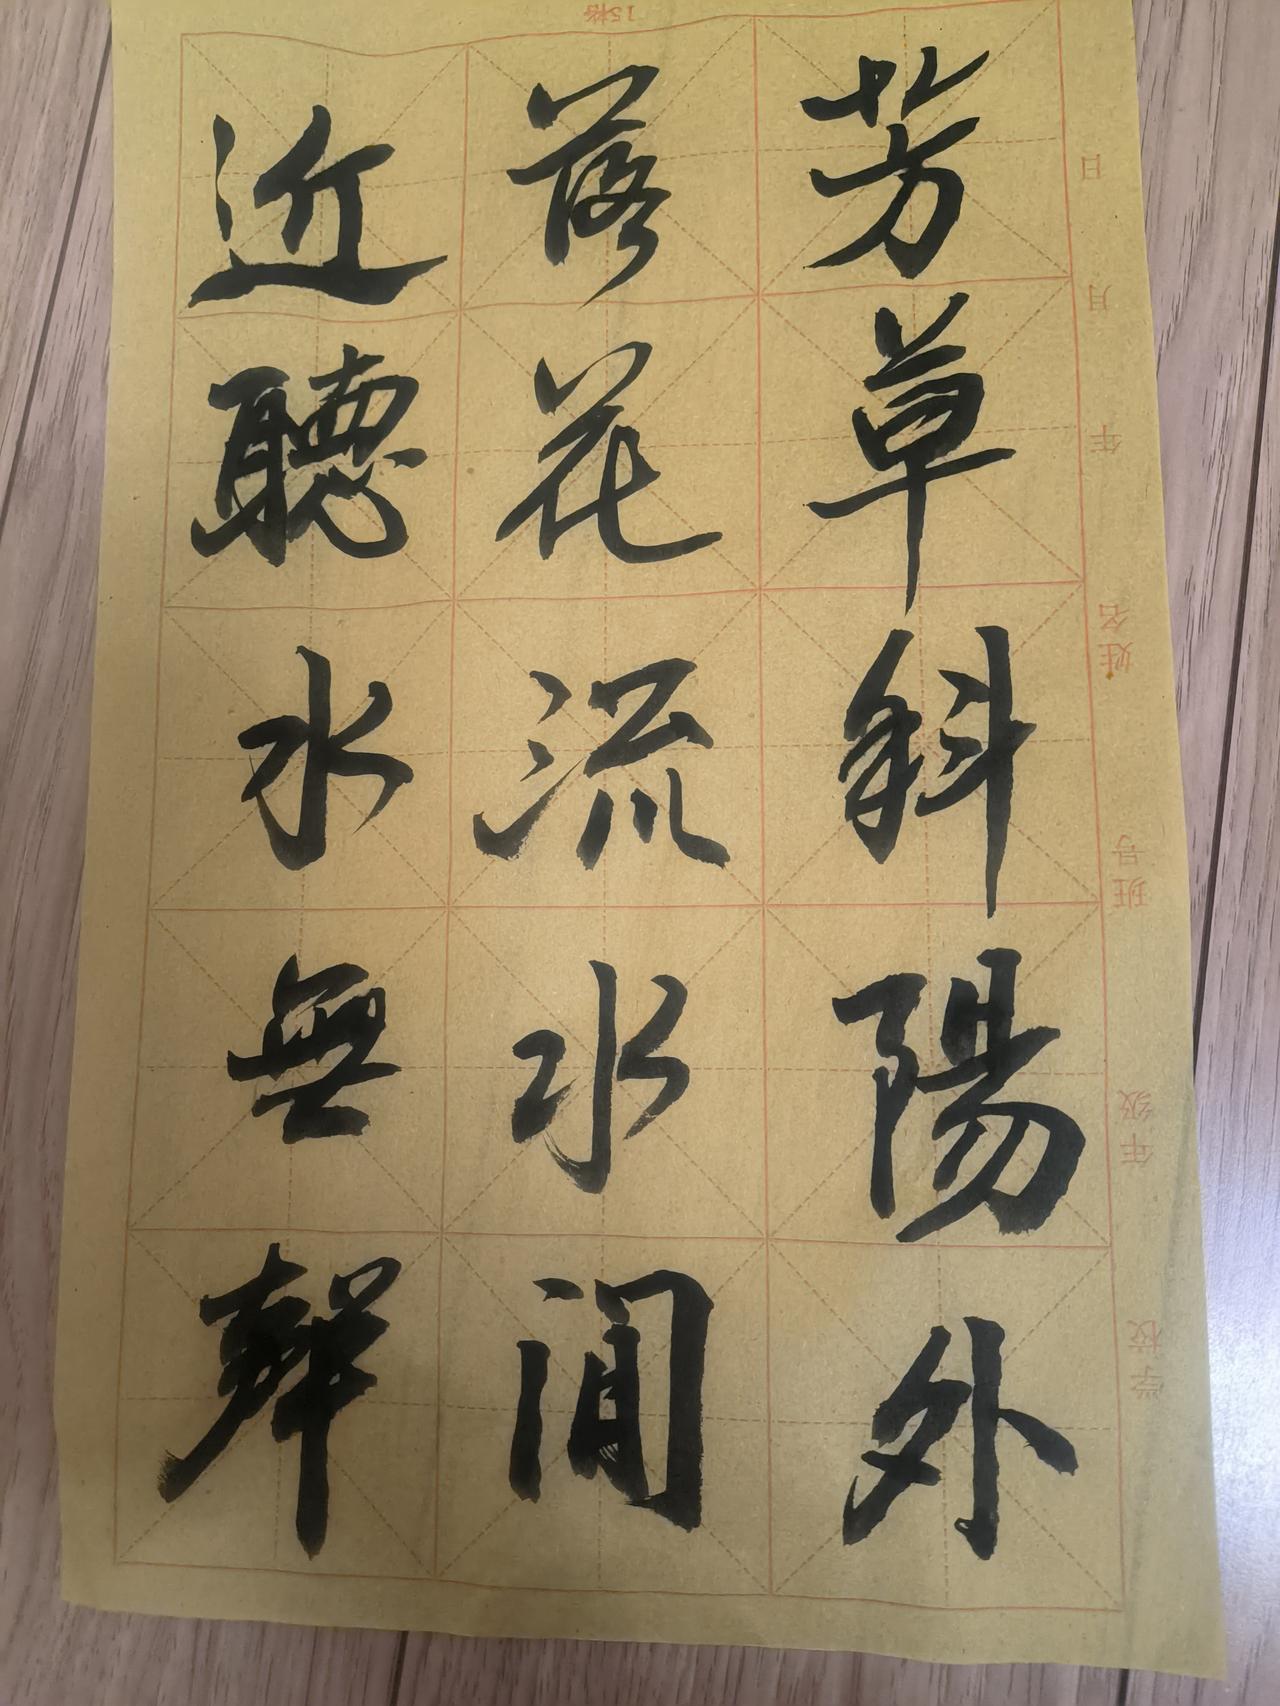 芳草斜陽外
落花流水間
近聽水無聲
15格
学校 年级 班号 姓名 年 月 日